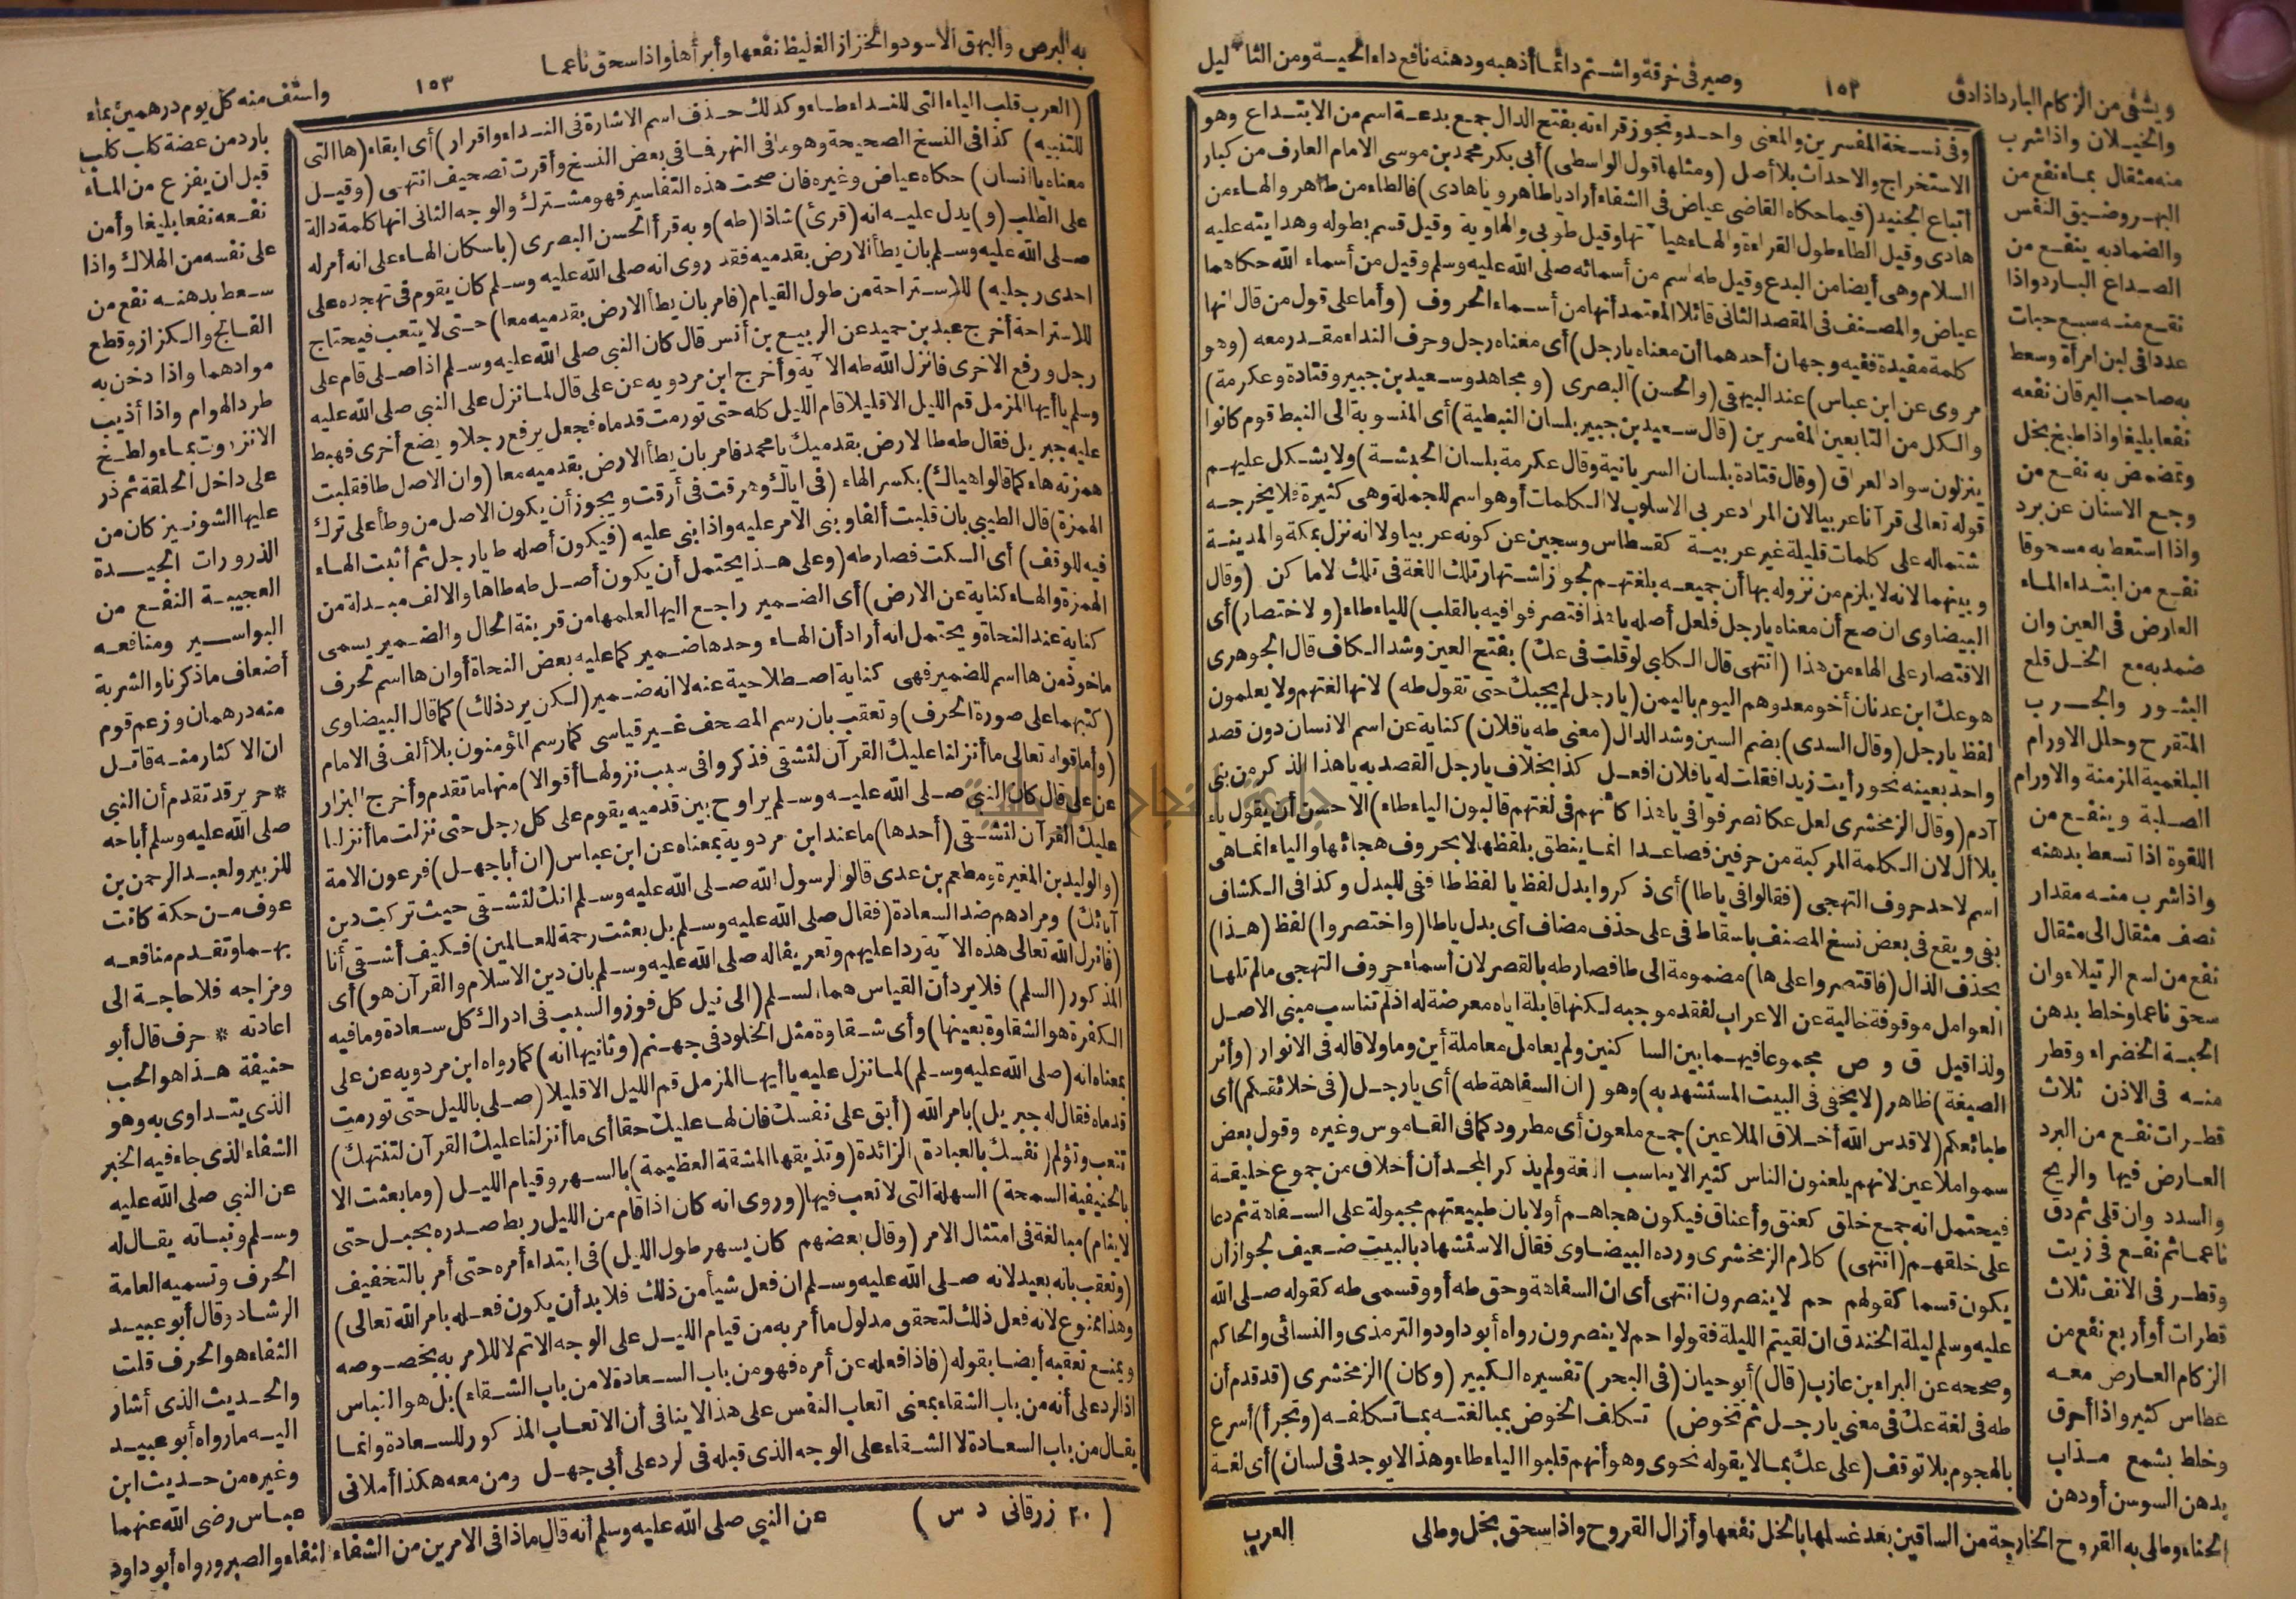 ويشفى من الزكام البارد اذا دق
١٥٢
وصير في خرقة واشتم دائما أذهبه ودهنه نافع داء الحية ومن الثآليل
والخيلان واذا شرب
منه مثقال بماء نفع من
البهر وضيق النفس
والضماد به ينفع من
الصداع البارد واذا
نقع منه سبع حبات
عددا فى لبن امرأة وسعط
به صاحب اليرقان نفعه
نفعا بليغا واذا طبخ بخل
وتمضمض به نفع من
وجع الاسنان عن برد
واذا استعط به مسحوقا
نفع من ابتداء الماء
العارض فى العين وان
ضمد به مع الخل قلع
البثور والجرب
المتقرح وحلل الاورام
البلغمية المزمنة والاورام
الصلبة وينفع من
اللقوة اذا تسعط بدهنه
واذا شرب منه مقدار
نصف مثقال الى مثقال
نفع من لسع الرتيلاء وان
سحق ناعما وخلط بدهن
الحبة الخضراء وقطر
منه فى الاذن ثلاث
قطرات نفع من البرد
العارض فيها والريح
والسدد وان قلى ثم دق
ناعما ثم نقع فى زيت
وقطر فى الانف ثلاث
قطرات أو أربع نفع من
الزكام العارض معه
عطاس كثير واذا أحرق
وخلط بشمع مذاب
بدهن السوسن أو دهن
الحناء وطلى به القروح الخارجة من الساقين بعد غسلها بالخل نفعها وأزال القروح واذا سحق بخل وطلى
وفى نسخة المفسرين والمعنى واحد وتجوز قراءته بفتح الدال جمع بدعة اسم من الابتداع وهو
الاستخراج والاحداث بلا أصل (ومثلها قول الواسطى) أبى بكر محمد بن موسى الامام العارف من كبار
أتباع الجنيد (فيما حكاه القاضى عياض فى الشفاء أراد يا طاهر ويا هادى) فالطاء من طاهر والهاء من
هادى وقيل الطاء طول القراءة والهاء هيآتها وقيل طوبى والهاوية وقيل قسم بطوله وهدايته عليه
السلام وهى أيضا من البدع وقيل طه اسم من أسمائه صلى الله عليه وسلم وقيل من أسماء الله حكاهما
عياض والمصنف فى المقصد الثانى قائلا المعتمد أنها من أسماء الحروف (وأما على قول من قال انها
كلمة مفيدة ففيه وجهان أحدهما أن معناه يا رجل) أى معناه رجل وحرف النداء مقدر معه (وهو
مروى عن ابن عباس) عند البيهقى (والحسن) البصرى (ومجاهد وسعيد بن جبير وقتادة وعكرمة)
والكل من التابعين المفسرين (قال سعيد بن جبير بلسان النبطية) أى المنسوبة الى النبط قوم كانوا
ينزلون سواد العراق (وقال قتادة بلسان السريانية وقال عكرمة بلسان الحبشة) ولا يشكل عليهم
قوله تعالى قرآنا عربيا لان المراد عربى الاسلوب لا الكلمات أو هو اسم للجملة وهى كثيرة فلا يخرجه
شتماله على كلمات قليلة غير عربية كقسطاس وسجين عن كونه عربيا ولا انه نزل بمكة والمدينة
وبينهما لانه لا يلزم من نزوله بها أن جميعه بلغتهم لجواز اشتهار تلك اللغة فى تلك لاماكن (وقال
البيضاوى ان صح أن معناه يا رجل فلعل أصله يا هذا فتصرفوا فيه بالقلب) للياء طاء (ولاختصار) أى
الاقتصار على الهاء من هذا (انتهى قال الكلبى لو قلت فى عك) بفتح العين وشد الكاف قال الجوهرى
هو عك ابن عدنان أخو معد وهم اليوم باليمن (يا رجل لم يجبك حتى تقول طه) لانها لغتهم ولا يعلمون
لفظ يا رجل (وقال السدى) بضم السين وشد الدال (معنى طه يا فلان) كناية عن اسم الانسان دون قصد
واحد بعينه نحو رأيت زيدا فقلت له يا فلان افعل كذا بخلاف يا رجل القصد به يا هذا الذكر من بنى
آدم (وقال الزمخشرى لعل عكا تصرفوا فى يا هذا كأنهم فى لغتهم قالبون الياء طاء) الاحسن أن يقول ياء
بلا أل لان الكلمة المركبة من حرفين فصاعدا انما ينطق بلفظها لا بحروف هجائها والياء انما هى
اسم لاحد حروف التهجى (فقالوا فى يا طا) أى ذكروا بدل لفظ يا لفظ طا ففى للبدل وكذا فى الكشاف
بفى ويقع فى بعض نسخ المصنف باسقاط فى على حذف مضاف أى بدل يا طا (واختصروا) لفظ (هذا)
بحذف الذال (فاقتصروا على ها) مضمومة الى طا فصار طه بالقصر لان أسماء حروف التهجى ما لم تلها
العوامل موقوفة خالية عن الاعراب لفقد موجبه لكنها قابلة اياه معرضة له اذ لم تناسب مبنى الاصل
ولذا قيل ق و ص مجموعا فيهما بين الساكنين ولم يعامل معاملة أين وما ولا قاله فى الانوار (وأثر
الصيغة) ظاهر (لا يخفى فى البيت المستشهد به) وهو (ان السفاهة طه) أى يا رجل (فى خلائقكم) أى
طبائعكم (لا قدس الله أخلاق الملاعين) جمع ملعون أى مطرود كما فى القاموس وغيره وقول بعض
سموا ملاعين لانهم يلعنون الناس كثير الا يناسب الغة ولم يذكر المجد أن أخلاق من جموع خليقة
فيحتمل انه جمع خلق كعنق وأعناق فيكون هجاهم أولا بان طبيعتهم مجبولة على السفاهة ثم دعا
على خلقهم (انتهى) كلام الزمخشرى ورده البيضاوى فقال الاستشهاد بالبيت ضعيف لجواز أن
يكون قسما كقولهم حم لا ينصرون انتهى أى ان السفاهة وحق طه أو وقسمى طه كقوله صلى الله
عليه وسلم ليلة الخندق ان لقيتم الليلة فقولوا حم لا ينصرون رواه أبو داود والترمذى والنسائى والحاكم
وصححه عن البراء بن عازب (قال) أبو حيان (فى البحر) تفسيره الكبير (وكان) الزمخشرى (قد قدم أن
طه فى لغة عك فى معنى يا رجل ثم تخوض) تكلف الخوض بمبالغته بما تكلفه (وتجرأ) أسرع
بالهجوم بلا توقف (على عك بما لا يقوله نحوى وهو أنهم قلبوا الياء طاء وهذا لا يوجد فى لسان) أى لغة
العرب
به البرص والبهق الاسود والحزاز الغليظ نفعها وأبرأها واذا سحق ناعما
١٥٣
واستف منه كل يوم درهمين بماء
(العرب قلب الياء التى للنداء طاء وكذلك حذف اسم الاشارة فى النداء واقرار) أى ابقاء (ها التى
للتنبيه) كذا فى النسخ الصحيحة وهو ما فى النهر فما فى بعض النسخ وأقرت تصحيف انتهى (وقيل
معناه يا انسان) حكاه عياض وغيره فان صحت هذه التفاسير فهو مشترك والوجه الثانى انها كلمة دالة
على الطلب (و) يدل عليه انه (قرئ) شاذا (طه) وبه قرأ الحسن البصرى (باسكان الهاء على انه أمر له
صلى الله عليه وسلم بان يطأ الارض بقدميه فقد روى انه صلى الله عليه وسلم كان يقوم فى تهجده على
احدى رجليه) للاستراحة من طول القيام (فامر بان يطأ الارض بقدميه معا) حتى لا يتعب فيحتاج
للاستراحة أخرج عبد بن حميد عن الربيع بن أنس قال كان النبى صلى الله عليه وسلم اذا صلى قام على
رجل ورفع الاخرى فانزل الله طه الآية وأخرج ابن مردويه عن على قال لما نزل على النبى صلى الله عليه
وسلم يا أيها المزمل قم الليل الا قليلا قام الليل كله حتى تورمت قدماه فجعل يرفع رجلا ويضع أخرى فهبط
عليه جبريل فقال طه طا الارض بقدميك يا محمد فامر بان يطأ الارض بقدميه معا (وان الاصل طا فقلبت
همزته هاء كما قالوا هياك) بكسر الهاء (فى اياك وهرقت فى أرقت ويجوز أن يكون الاصل من وطأ على ترك
الهمزة) قال الطيبى بان قلبت ألفا وبنى الامر عليه واذا بنى عليه (فيكون أصله طا يا رجل ثم أثبت الهاء
فيه للوقف) أى السكت فصار طه (وعلى هذا يحتمل أن يكون أصل طه طاها والالف مبدلة من
الهمزة والهاء كناية عن الارض) أى الضمير راجع اليها لعلمها من قرينة الحال والضمير يسمى
كناية عند النحاة ويحتمل انه أراد أن الهاء وحدها ضمير كما عليه بعض النحاة أو ان ها اسم لحرف
ماخوذ من ها اسم للضمير فهى كناية اصطلاحية عنه لا انه ضمير (لكن يرد ذلك) كما قال البيضاوى
(كتبهما على صورة الحرف) وتعقب بان رسم المصحف غير قياسى كما رسم المؤمنون بلا ألف فى الامام
(وأما قوله تعالى ما أنزلنا عليك القرآن لتشقى فذكروا فى سبب نزولها أقوالا) منها ما تقدم وأخرج البزار
عن على قال كان النبى صلى الله عليه وسلم يراوح بين قدميه يقوم على كل رجل حتى نزلت ما أنزلنا
عليك القرآن لتشقى (أحدها) ما عند ابن مردويه بمعناه عن ابن عباس (ان أبا جهل) فرعون الامة
(والوليد بن المغيرة ومطعم بن عدى قالوا لرسول الله صلى الله عليه وسلم انك لتشقى حيث تركت دين
آبائك) ومرادهم ضد السعادة (فقال صلى الله عليه وسلم بل بعثت رحمة للعالمين) فكيف أشقى أنا
(فانزل الله تعالى هذه الآية ردا عليهم وتعريفا له صلى الله عليه وسلم بان دين الاسلام والقرآن هو) أى
المذكور (السلم) فلا يرد أن القياس هما السلم (الى نيل كل فوز والسبب فى ادراك كل سعادة وما فيه
الكفرة هو الشقاوة بعينها) وأى شقاوة مثل الخلود فى جهنم (وثانيها انه) كما رواه ابن مردويه عن على
بمعناه انه (صلى الله عليه وسلم) لما نزل عليه يا أيها المزمل قم الليل الا قليلا (صلى بالليل حتى تورمت
قدماه فقال له جبريل) بامر الله (أبق على نفسك فان لها عليك حقا أى ما أنزلنا عليك القرآن لتنهك)
تتعب وتؤلم (نفسك بالعبادة) الزائدة (وتذيقها المشقة العظيمة) بالسهر وقيام الليل (وما بعثت الا
بالحنيفية السمحة) السهلة التى لا تعب فيها (وروى انه كان اذا قام من الليل ربط صدره بحبل حتى
لا ينام) مبالغة فى امتثال الامر (وقال بعضهم كان يسهر طول الليل) فى ابتداء أمره حتى أمر بالتخفيف
(وتعقب بانه بعيد لانه صلى الله عليه وسلم ان فعل شيأ من ذلك فلا بد أن يكون فعله بامر الله تعالى)
وهذا ممنوع لانه فعل ذلك لتحقق مدلول ما أمر به من قيام الليل على الوجه الاتم لا للامر به بخصوصه
وبمنع تعقبه أيضا بقوله (فاذا فعله عن أمره فهو من باب السعادة لا من باب الشقاء) بل هو الناس
اذ الرد على أنه من باب الشقاء بمعنى اتعاب النفس على هذا لا ينافى أن الاتعاب المذكور للسعادة وانما
يقال من باب السعادة لا الشقاء على الوجه الذى قبله فى لرد على أبى جهل ومن معه هكذا أملانى
بارد من عضة كلب كلب
قبل ان يفزع من الماء
نفعه نفعا بليغا وأمن
على نفسه من الهلاك واذا
سعط بدهنه نفع من
الفالج والكزاز وقطع
موادهما واذا دخن به
طرد الهوام واذا أذيب
الانزروت بماء ولطخ
على داخل الحلقة ثم ذر
عليها الشونيز كان من
الذرورات الجيدة
العجيبة النفع من
البواسير ومنافعه
أضعاف ما ذكرنا والشربة
منه درهمان وزعم قوم
ان الاكثار منه قاتل
* حرير قد تقدم أن النبى
صلى الله عليه وسلم أباحه
للزبير ولعبد الرحمن بن
عوف من حكة كانت
بهما وتقدم منافعه
ومزاجه فلا حاجة الى
اعادته * حرف قال أبو
حنيفة هذا هو الحب
الذى يتداوى به وهو
الثفاء الذى جاء فيه الخبر
عن النبى صلى الله عليه
وسلم ونباته يقال له
الحرف وتسميه العامة
الرشاد وقال أبو عبيد
الثفاء هو الحرف قلت
والحديث الذى أشار
اليه ما رواه أبو عبيد
وغيره من حديث ابن
عباس رضى الله عنهما
( ٢٠ زرقانى د س )
عن النبى صلى الله عليه وسلم أنه قال ماذا فى الامرين من الشفاء الثفاء والصبر ورواه أبو داود
جامعة النجاح الوطنية